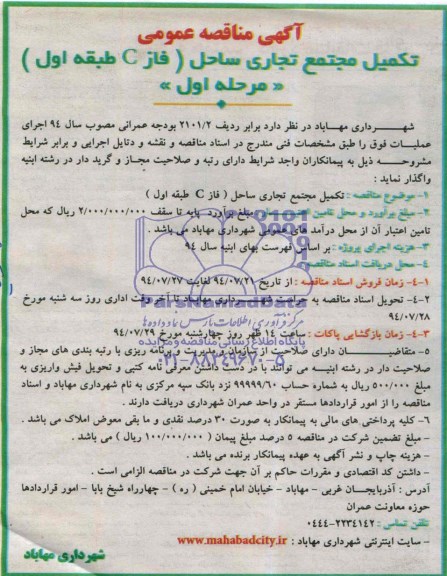 آگهی مناقصه عمومی
تکمیل مجتمع تجاری ساحل ( فاز C طبقه اول )
« مرحله اول »
شهرداری مهاباد در نظر دارد برابر ردیف ۲۱۰۱/۲ بودجه عمرانی مصوب سال ۹۴ اجرای
عملیات فوق را طبق مشخصات فنی مندرج در اسناد مناقصه و نقشه و دتایل اجرایی و برابر شرایط
مشروحه ذیل به پیمانکاران واجد شرایط دارای رتبه و صلاحیت مجاز و گرید دار در رشته ابنیه
واگذار نماید :
۱- موضوع مناقصه : تکمیل مجتمع تجاری ساحل ( فاز C طبقه اول )
۲- مبلغ برآورد و محل تامین مبلغ برآورد پایه تا سقف ۲/۰۰۰/۰۰۰/۰۰۰ ریال که محل
تامین اعتبار آن از محل درآمد های عمومی شهرداری مهاباد می باشد .
۳- هزینه اجرای پروژه : بر اساس فهرست بهای ابنیه سال ۹۴
۴- محل دریافت اسناد مناقصه
۴-۱- زمان فروش اسناد مناقصه : از تاریخ ۹۴/۰۷/۲۱ لغایت ۹۴/۰۷/۲۷
۴-۲- تحویل اسناد مناقصه به حراست شهرداری مهاباد تا آخر وقت اداری روز سه شنبه مورخ
۹۴/۰۷/۲۸
۴-۳- زمان بازگشایی پاکات : ساعت ۱۴ ظهر روز چهارشنبه مورخ ۹۴/۰۷/۲۹
۵- متقاضیان دارای صلاحیت از سازمان مدیریت و برنامه ریزی با رتبه بندی های مجاز و
صلاحیت دار در رشته ابنیه می توانند با در دست داشتن معرفی نامه کتبی و تحویل فیش واریزی به
مبلغ ۵۰۰/۰۰۰ ریال به شماره حساب ۹۹۹۹۹/۶۰ نزد بانک سپه مرکزی به نام شهرداری مهاباد و اسناد
مناقصه را از امور قراردادها مستقر در واحد عمران شهرداری دریافت دارند .
۶- کلیه پرداختی های مالی به پیمانکار به صورت ۳۰ درصد نقدی و ما بقی معوض املاک می باشد .
- مبلغ تضمین شرکت در مناقصه ۵ درصد مبلغ پیمان ( ۱۰۰/۰۰۰/۰۰۰ ریال ) می باشد .
- هزینه چاپ و نشر آگهی به عهده پیمانکار برنده می باشد .
- داشتن کد اقتصادی و مقررات حاکم بر آن جهت شرکت در مناقصه الزامی است .
آدرس : آذربایجان غربی - مهاباد - خیابان امام خمینی ( ره ) - چهارراه شیخ بابا - امور قراردادها
حوزه معاونت عمران
تلفن تماس : ۰۴۴۴-۲۲۳۴۱۴۲
- سایت اینترنتی شهرداری مهاباد : www.mahabadcity.ir
شهرداری مهاباد
ParsNamadData
مرکز فرآوری اطلاعات پارس نماد داده ها
پایگاه اطلاع رسانی مناقصه و مزایده
۰۲۱-۸۸۳۴۹۶۷۰-۵